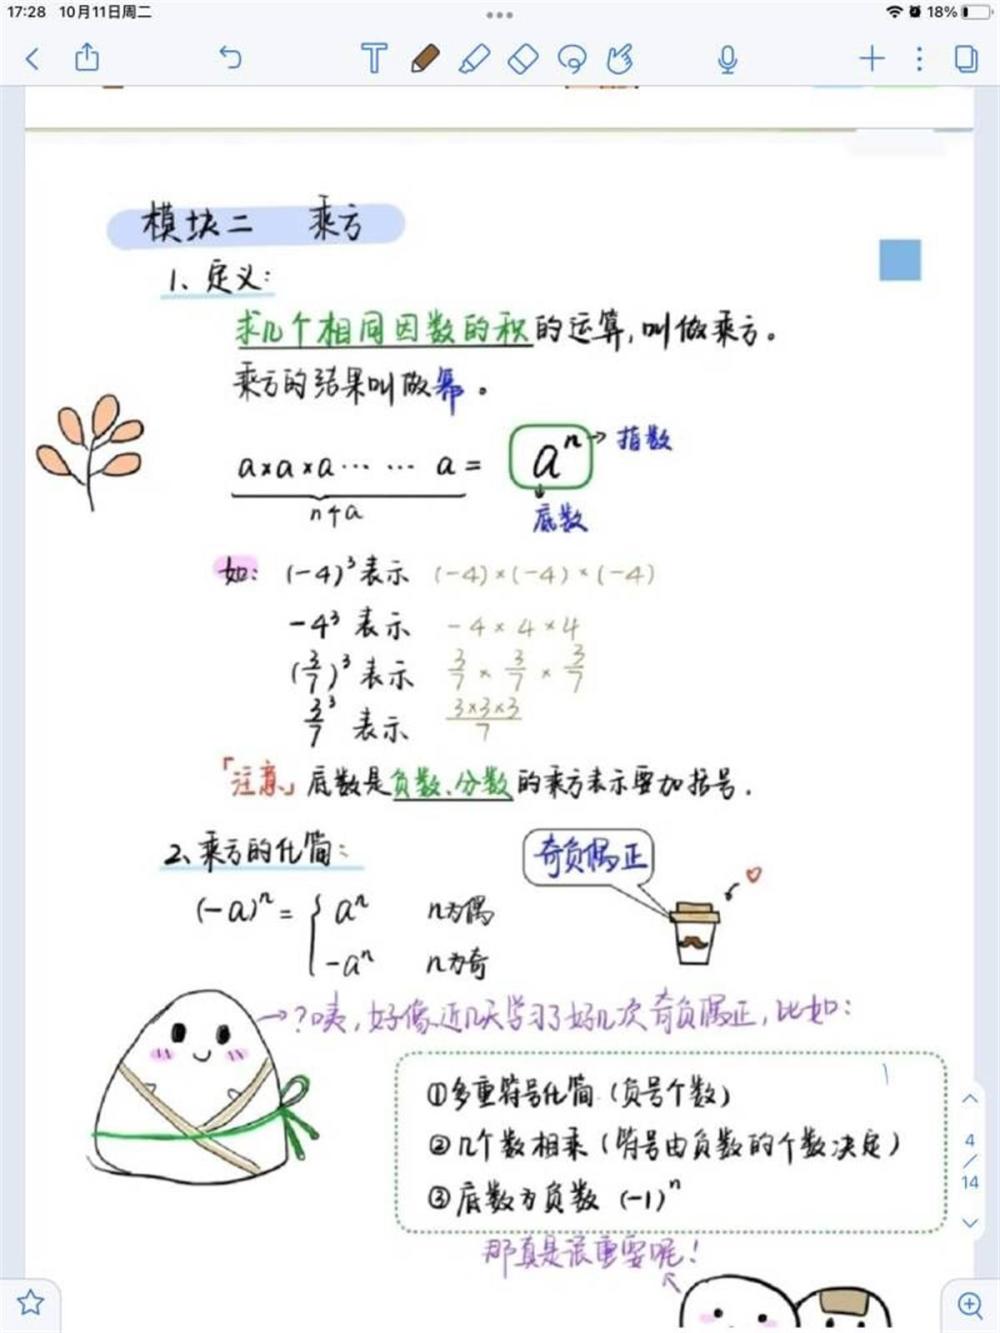 17:28 10月11日周二 18%
模块二 乘方
1、定义:
求几个相同因数的积的运算,叫做乘方。
乘方的结果叫做幂。
a×a×a…… a = aⁿ → 指数
n个a
底数
如: (-4)³表示 (-4)×(-4)×(-4)
-4³ 表示 -4×4×4
(3/7)³ 表示 3/7 × 3/7 × 3/7
3³/7 表示 3×3×3/7
「注意」底数是负数、分数的乘方表示要加括号.
2、乘方的化简:
奇负偶正
(-a)ⁿ = { aⁿ n为偶
-aⁿ n为奇
→?咦,好像近几天学习了好几次奇负偶正,比如:
①多重符号化简(负号个数)
②几个数相乘(符号由负数的个数决定)
③底数为负数 (-1)ⁿ
那真是很重要呢!
4
/
14